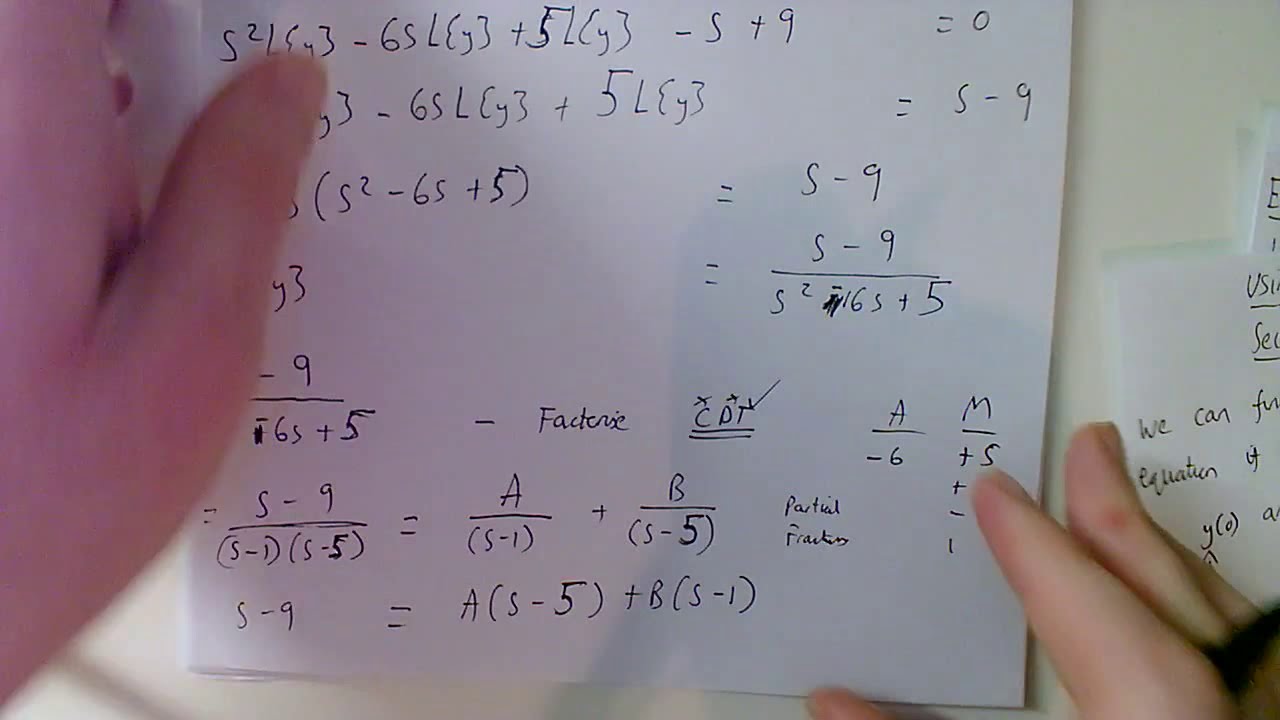 s²L{y} - 6sL{y} + 5L{y} - s + 9 = 0
y} - 6sL{y} + 5L{y} = s - 9
(s² - 6s + 5) = s - 9
y} = s - 9 / s² - 6s + 5
- 9 / - 6s + 5 - Factorise CDT ✓ A M
-6 +5
+
-
1
= s - 9 / (s-1)(s-5) = A / (s-1) + B / (s-5) Partial Fractions
s - 9 = A(s - 5) + B(s - 1)
We can
equation if
y(0)